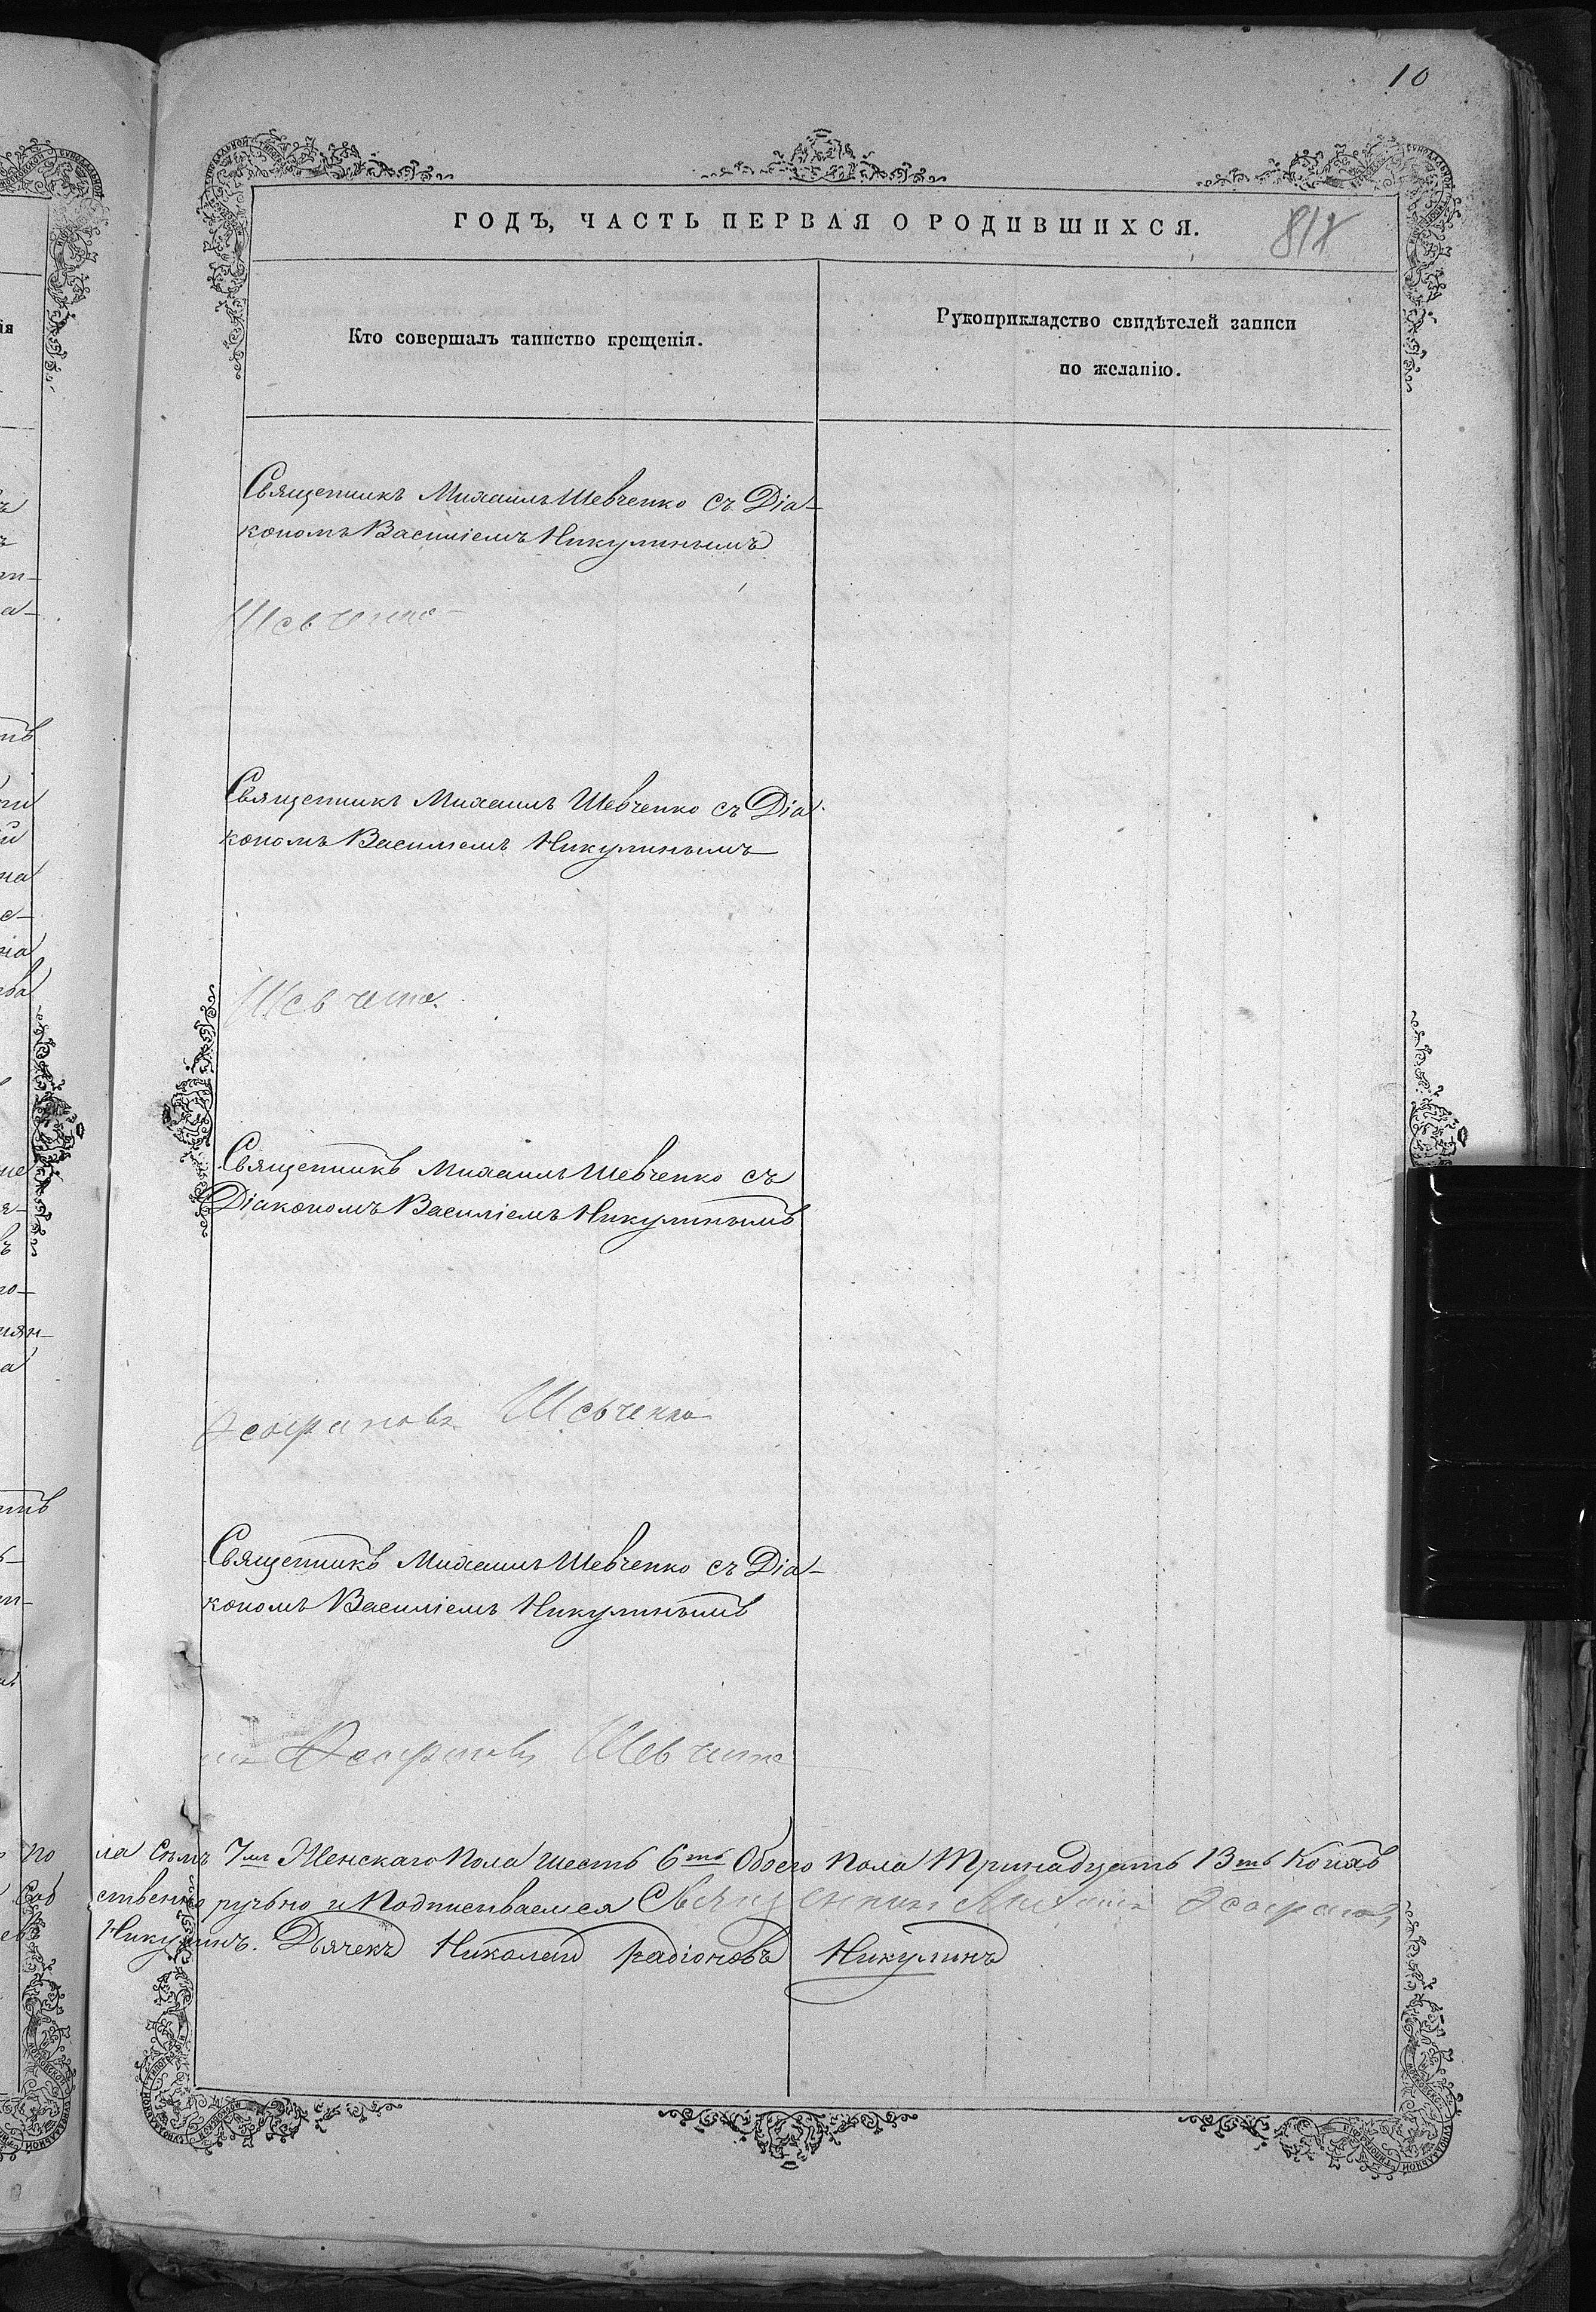 10
ГОДЪ, ЧАСТЬ ПЕРВАЯ О РОДИВШИХСЯ.
Кто совершалъ таинство крещенія.
Рукоприкладство свидѣтелей записи
по желанію.
Священникъ Михаилъ Шевченко съ Діа-
кономъ Василіемъ Никулинымъ
Шевченко
Священникъ Михаилъ Шевченко съ Діа
кономъ Василіемъ Никулинымъ
Шевченко
Священникъ Михаилъ Шевченко съ
Діакономъ Василіемъ Никулинымъ
Шевченко
Священникъ Михаилъ Шевченко съ Діа-
кономъ Василіемъ Никулинымъ
Шевченко
ла Семь 7мь Женскаго Пола Шесть 6ть Обоего Пола Тринадцать 13ть Коихъ
ственно ручьно и Подписываемся Священник Михаил
Никулинъ. Дьячекъ Николай Радіоновъ Никулинъ